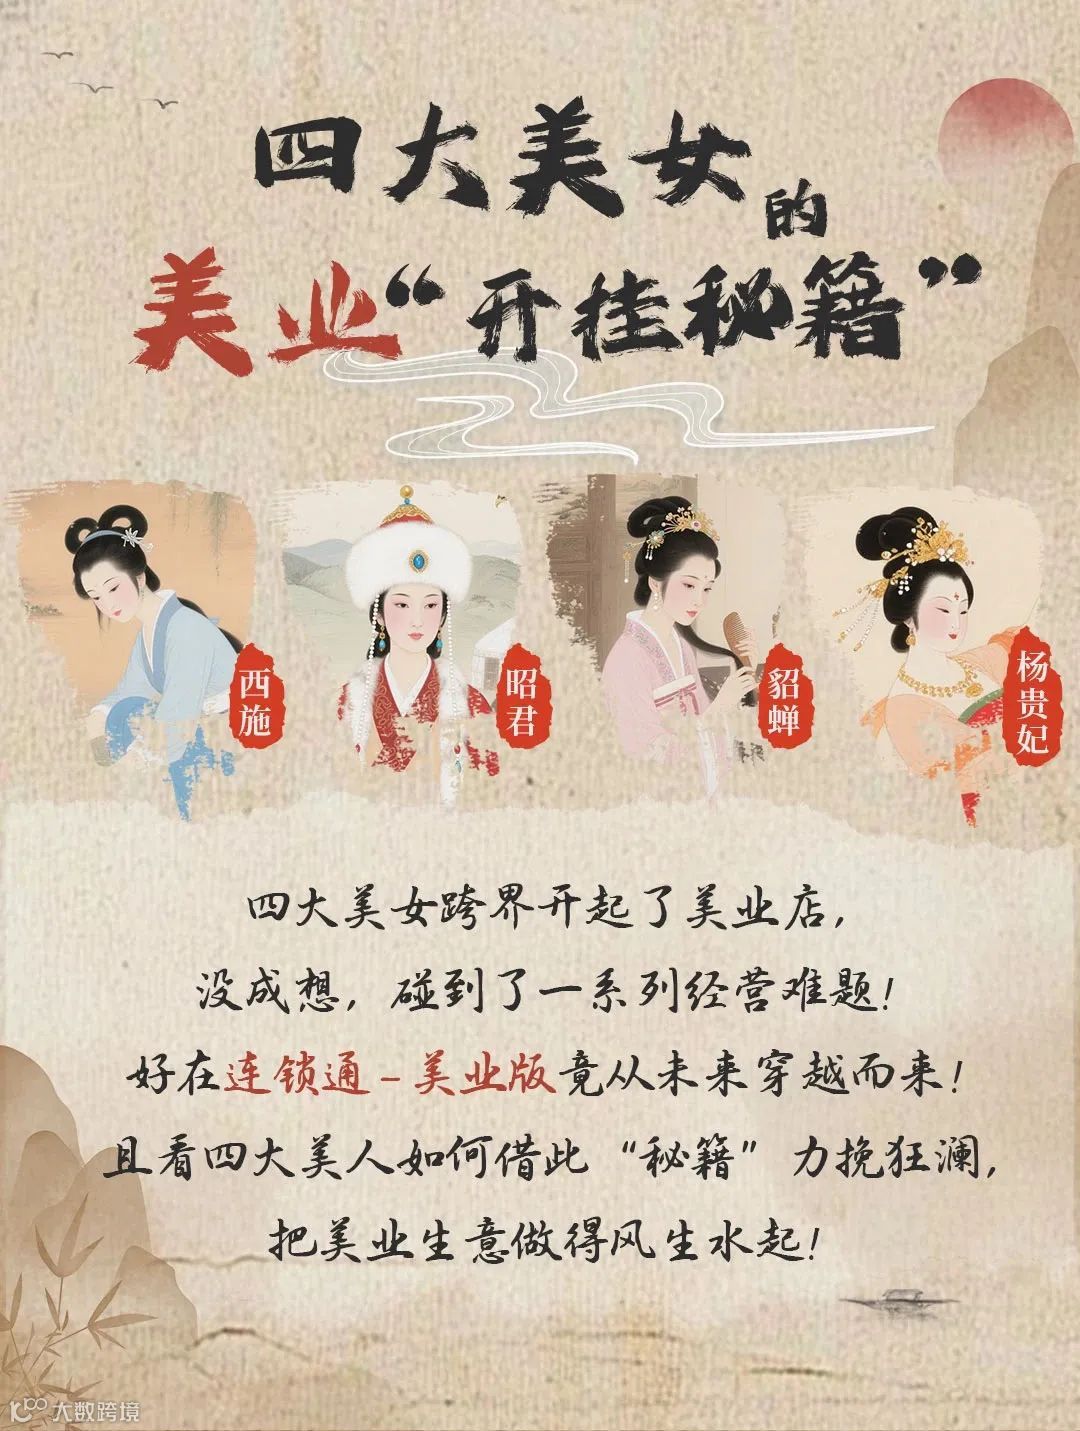 四大美女的
美业“开挂秘籍”
西施
昭君
貂蝉
杨贵妃
四大美女跨界开起了美业店,
没成想,碰到了一系列经营难题!
好在连锁通-美业版竟从未来穿越而来!
且看四大美人如何借此“秘籍”力挽狂澜,
把美业生意做得风生水起!
大数跨境